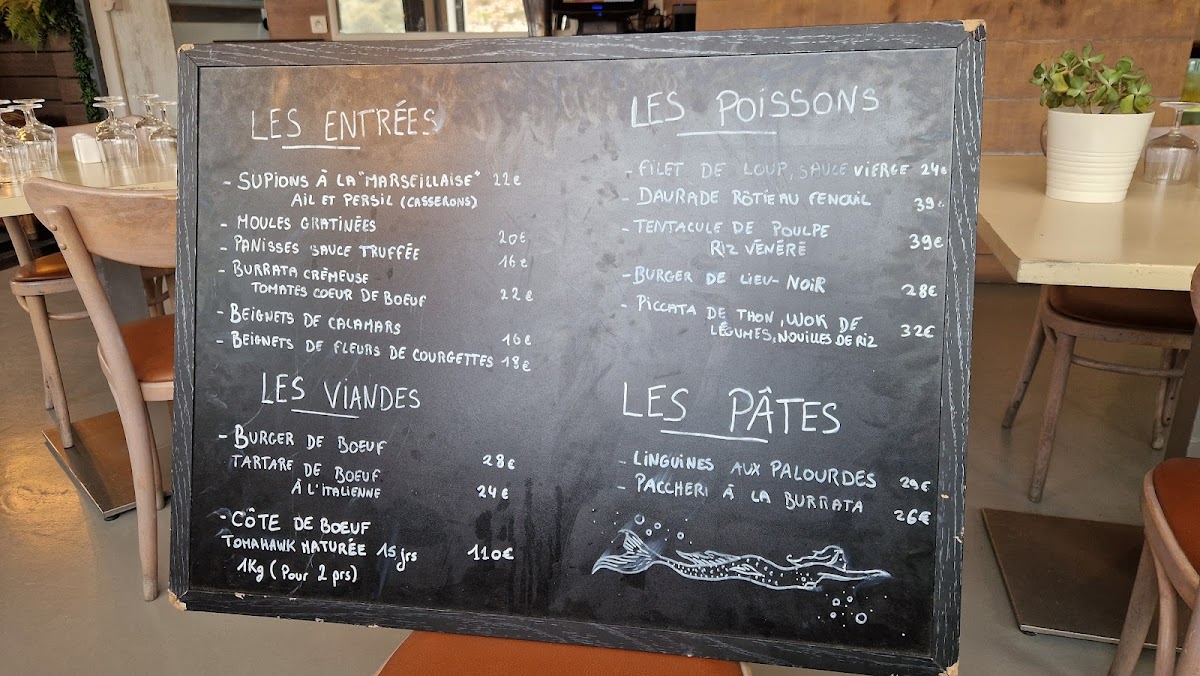 LES ENTRÉES
- SUPIONS À LA "MARSEILLAISE" 22€
AIL ET PERSIL (CASSERONS)
- MOULES GRATINÉES 20€
- PANISSES SAUCE TRUFFÉE 16€
- BURRATA CRÉMEUSE
TOMATES COEUR DE BOEUF 22€
- BEIGNETS DE CALAMARS 16€
- BEIGNETS DE FLEURS DE COURGETTES 18€
LES VIANDES
- BURGER DE BOEUF 28€
TARTARE DE BOEUF
À L'ITALIENNE 24€
- CÔTE DE BOEUF
TOMAHAWK MATURÉE 15 jrs 110€
1Kg (Pour 2 prs)
LES POISSONS
- FILET DE LOUP, SAUCE VIERGE 24€
- DAURADE RÔTIE AU FENOUIL 39€
- TENTACULE DE POULPE
RIZ VÉNÉRÉ 39€
- BURGER DE LIEU-NOIR 28€
- PICCATA DE THON, WOK DE
LÉGUMES, NOUILLES DE RIZ 32€
LES PÂTES
- LINGUINES AUX PALOURDES 29€
- PACCHERI À LA BURRATA 26€